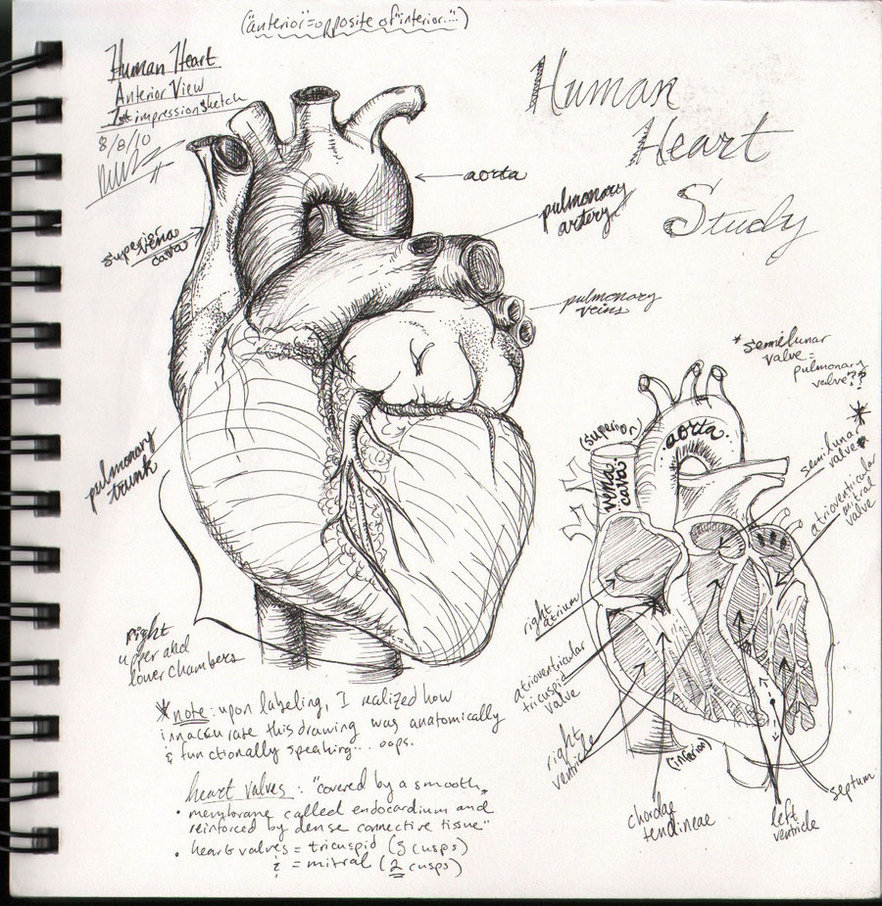 ("anterior"=opposite of "interior...")
Human Heart
Anterior View
1st impression sketch
8/8/10
Human
Heart
Study
aorta
pulmonary
artery
superior
vena
cava
pulmonary
veins
pulmonary
trunk
right
upper and
lower chambers
*note: upon labeling, I realized how
innaccurate this drawing was anatomically
& functionally speaking... oops.
heart valves: "covered by a smooth
• membrane called endocardium and
reinforced by dense connective tissue"
• heart valves = tricuspid (3 cusps)
& = mitral (2 cusps)
*semilunar
valve =
pulmonary
valve??
(superior)
vena
cava
aorta
semilunar
valve
atrioventricular
mitral
valve
right
atrium
atrioventricular
tricuspid
valve
right
ventricle
(inferior)
chordae
tendineae
left
ventricle
septum